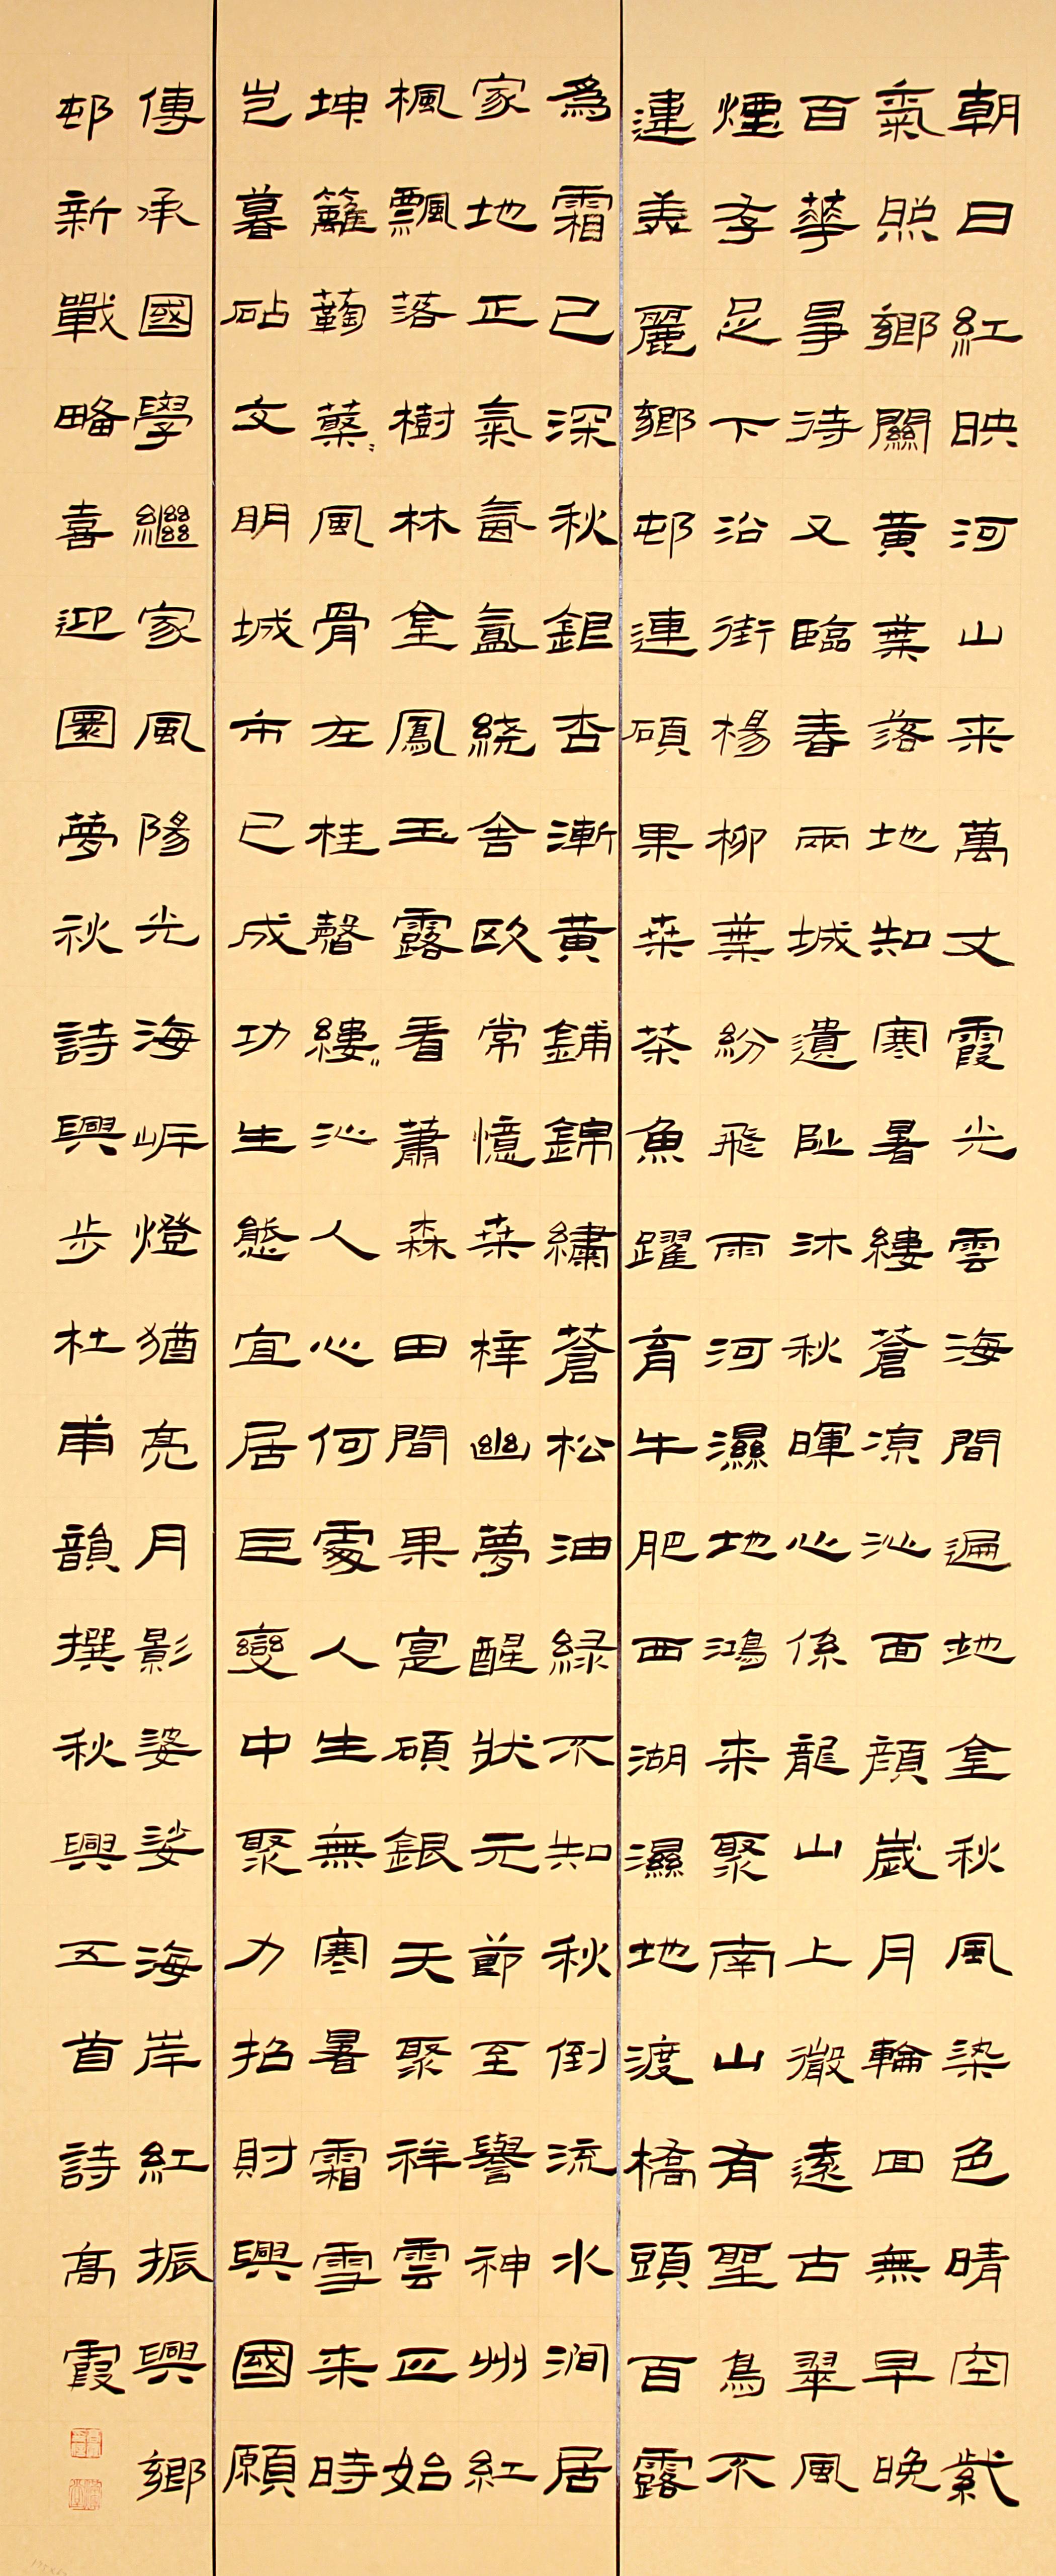 朝日紅映河山来萬丈霞光雲海間遍地金秋風染色晴空紫
氣照鄉關黃葉落地知寒暑縷蒼涼沁面顔歲月輪回無早晚
百華爭待又臨春兩城遺阯沐秋暉心係龍山上徵遠古翠風
煙孝足下沿街楊柳葉紛飛雨河濕地鴻来聚南山有聖鳥不
建美麗鄉邨連碩果桑茶魚躍育牛肥西湖濕地渡橋頭百露
為霜已深秋銀杏漸黃鋪錦繡蒼松油綠不知秋倒流水澗居
家地正氣氤氳繞舍欧常憶桑梓幽夢醒狀元節至譽神州紅
楓飄落樹林金鳳玉露看蕭森田間果寔碩銀天聚祥雲正始
坤籬菊蘂〻風骨在桂馨縷〻沁人心何處人生無寒暑霜雪来時
豈暮砧文明城市已成功生態宜居巨變中聚力招財興國願
傳承國學繼家風陽光海岸燈猶亮月影婆娑海岸紅振興鄉
邨新戰略喜迎圜夢秋詩興步杜甫韻撰秋興五首詩高霞